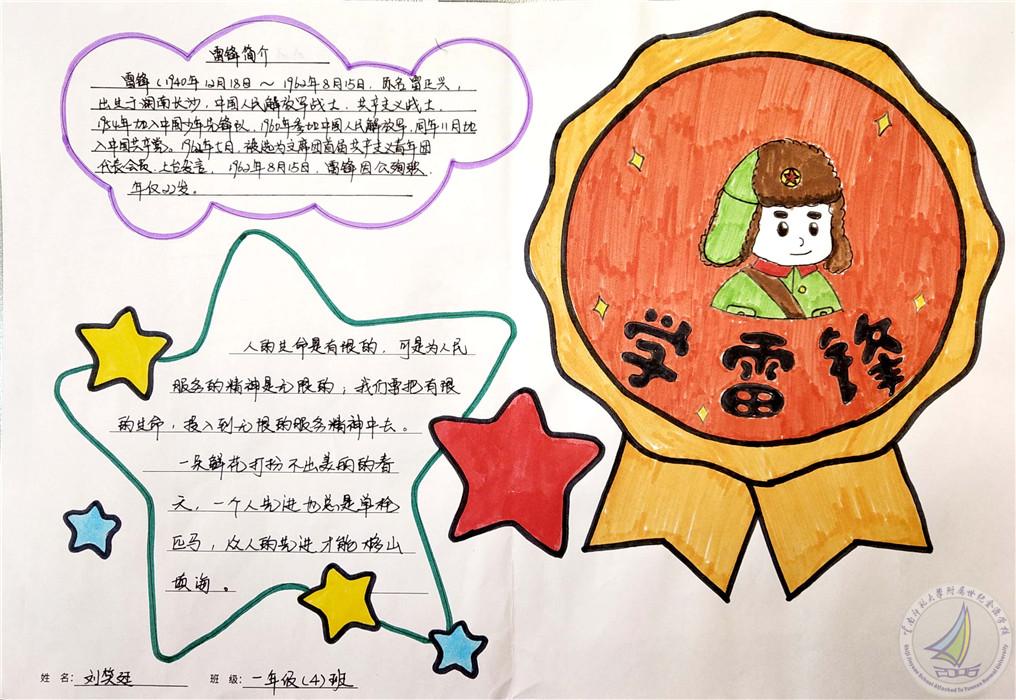 雷锋简介
雷锋（1940年12月18日～1962年8月15日，原名雷正兴，
出生于湖南长沙，中国人民解放军战士，共产主义战士，
1954年加入中国少年先锋队，1960年参加中国人民解放军，同年11月加
入中国共产党。1962年七月，被选为文 团首届共产主义青年团
代表会员，上台发言，1962年8月15日，雷锋因公殉职，
年仅22岁。
人的生命是有限的，可是为人民
服务的精神是无限的；我们要把有限
的生命，投入到无限的服务精神中去。
一朵鲜花打扮不出美丽的春
天，一个人先进也总是单枪
匹马，众人的先进才能移山
填海。
学雷锋
姓名：刘笑廷 班级：一年级（4）班
云南师范大學附屬世纪金源学校
Shiji Jinyuan School Attached To Yunnan Normal University